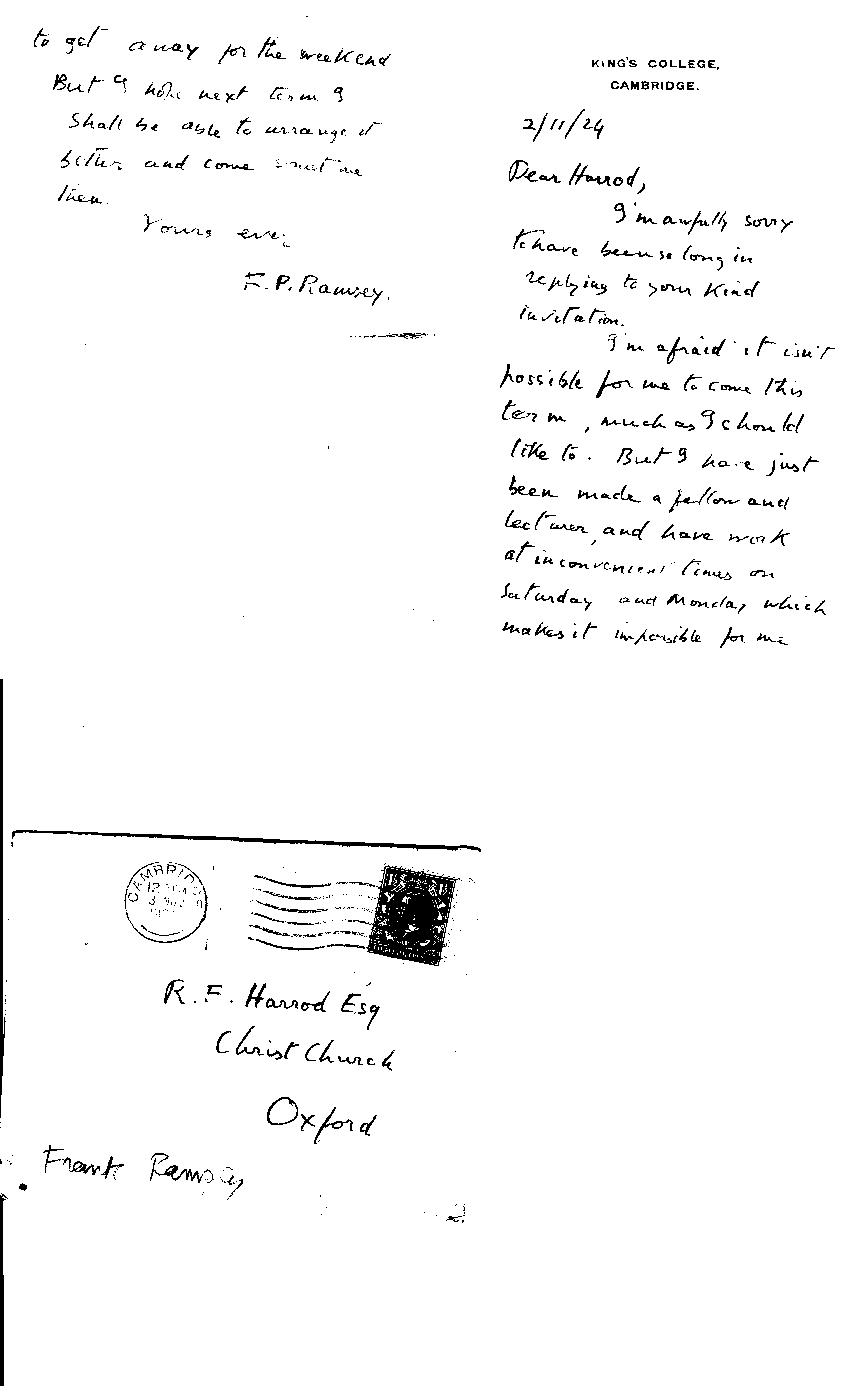 KING'S COLLEGE,
CAMBRIDGE.
2/11/24
Dear Harrod,
I'm awfully sorry
to have been so long in
replying to your kind
invitation.
I'm afraid it isn't
possible for me to come this
term, much as I should
like to. But I have just
been made a fellow and
lecturer, and have work
at inconvenient times on
Saturday and Monday which
makes it impossible for me
to get away for the weekend
But I hope next term I
shall be able to arrange it
better and come sometime
then.
Yours ever,
F.P. Ramsey.
CAMBRIDGE
R. F. Harrod Esq
Christ Church
Oxford
Frank Ramsey